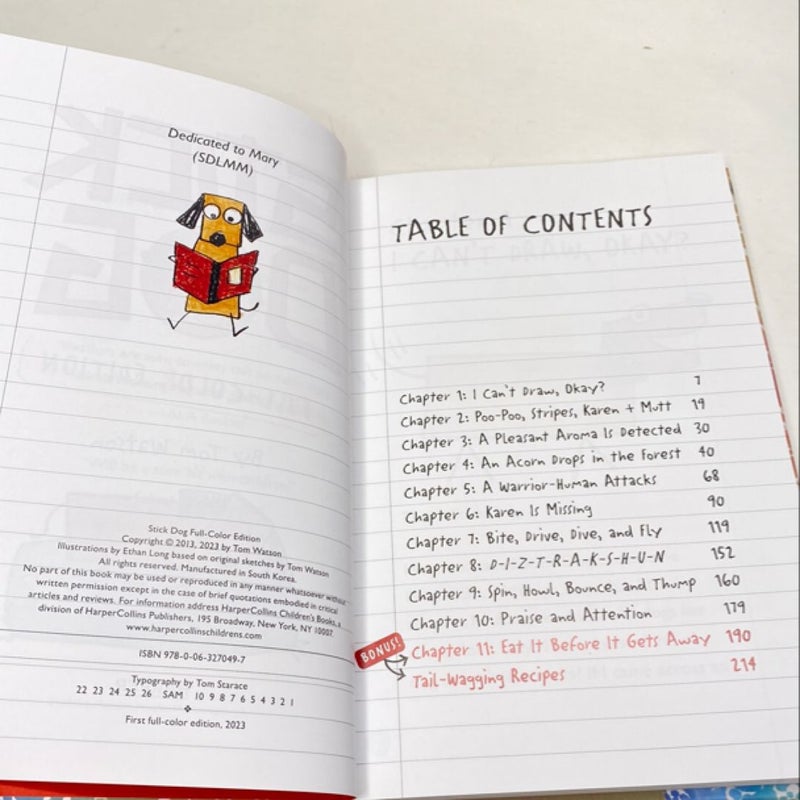 Dedicated to Mary
(SDLMM)
Stick Dog Full-Color Edition
Copyright © 2013, 2023 by Tom Watson
Illustrations by Ethan Long based on original sketches by Tom Watson
All rights reserved. Manufactured in South Korea.
No part of this book may be used or reproduced in any manner whatsoever without
written permission except in the case of brief quotations embodied in critical
articles and reviews. For information address HarperCollins Children's Books, a
division of HarperCollins Publishers, 195 Broadway, New York, NY 10007.
www.harpercollinschildrens.com
ISBN 978-0-06-327049-7
Typography by Tom Starace
22 23 24 25 26 SAM 10 9 8 7 6 5 4 3 2 1
First full-color edition, 2023
TABLE OF CONTENTS
Chapter 1: I Can't Draw, Okay? 1
Chapter 2: Poo-Poo, Stripes, Karen + Mutt 19
Chapter 3: A Pleasant Aroma Is Detected 30
Chapter 4: An Acorn Drops in the Forest 40
Chapter 5: A Warrior-Human Attacks 68
Chapter 6: Karen Is Missing 90
Chapter 7: Bite, Drive, Dive, and Fly 119
Chapter 8: D-I-Z-T-R-A-K-S-H-U-N 152
Chapter 9: Spin, Howl, Bounce, and Thump 160
Chapter 10: Praise and Attention 179
BONUS!
Chapter 11: Eat It Before It Gets Away 190
Tail-Wagging Recipes 214